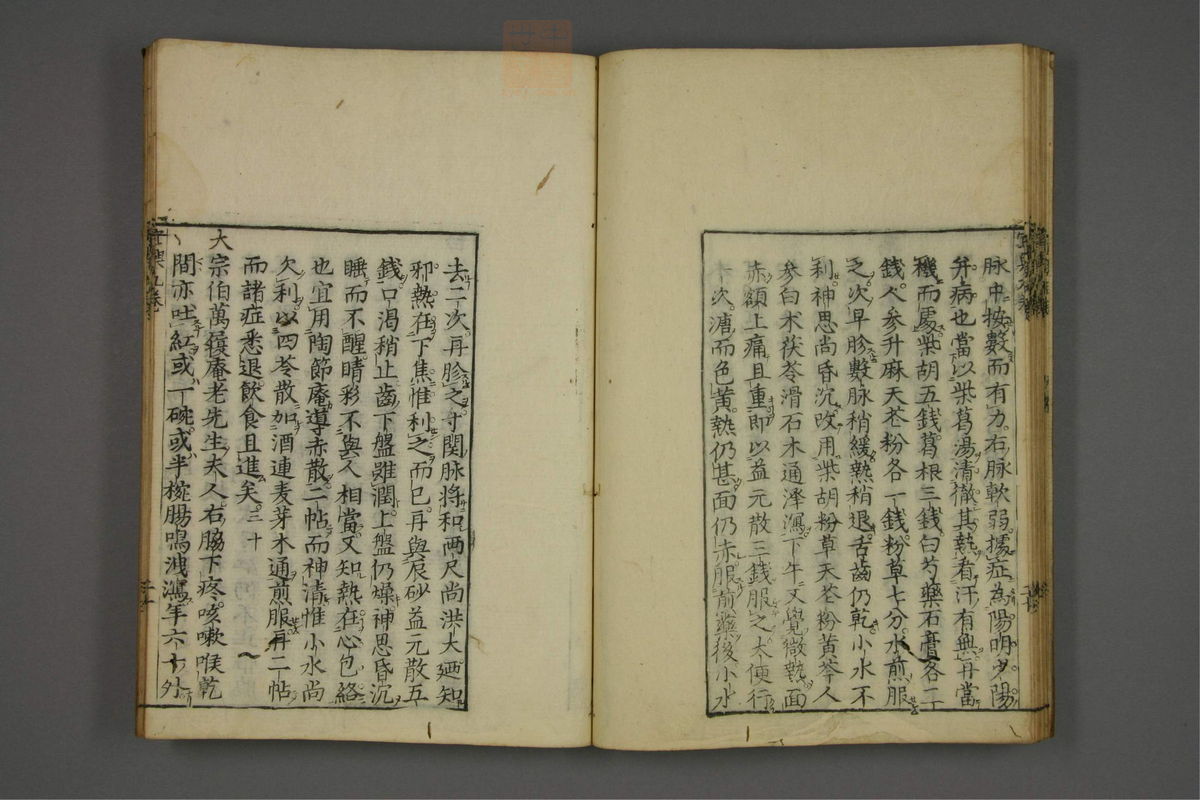 脉中按數而有力右脉軟弱據症為陽明少陽
并病也當以柴葛湯清徹其熱看汗有無再當
機而處柴胡五錢葛根三錢白芍藥石膏各二
錢人參升麻天花粉各一錢粉草七分水煎服
之次早胗數脉稍緩熱稍退舌齒仍乾小水不
利神思尚昏沉改用柴胡粉草天花粉黄芩人
參白术茯苓滑石木通澤瀉下午又覺微熱面
赤額上痛且重即以益元散三錢服之大便行
次溏而色黄熱仍甚面仍赤服前藥後小水
去二次再胗之寸関脉將和兩尺尚洪大廼知
邪熱在下焦惟利之而已再與辰砂益元散五
錢口渴稍止齒下盤雖潤上盤仍燥神思昏沉
睡而不醒睛彩不與人相當又知熱在心包絡
也宜用陶節庵導赤散二帖而神清惟小水尚
欠利以四苓散加酒連麦芽木通煎服再二帖
而諸症悉退飲食且進矣三十
大宗伯萬履庵老先生夫人右脇下疼咳嗽喉乾
間亦吐紅或一碗或半椀腸鳴洩瀉年六十外